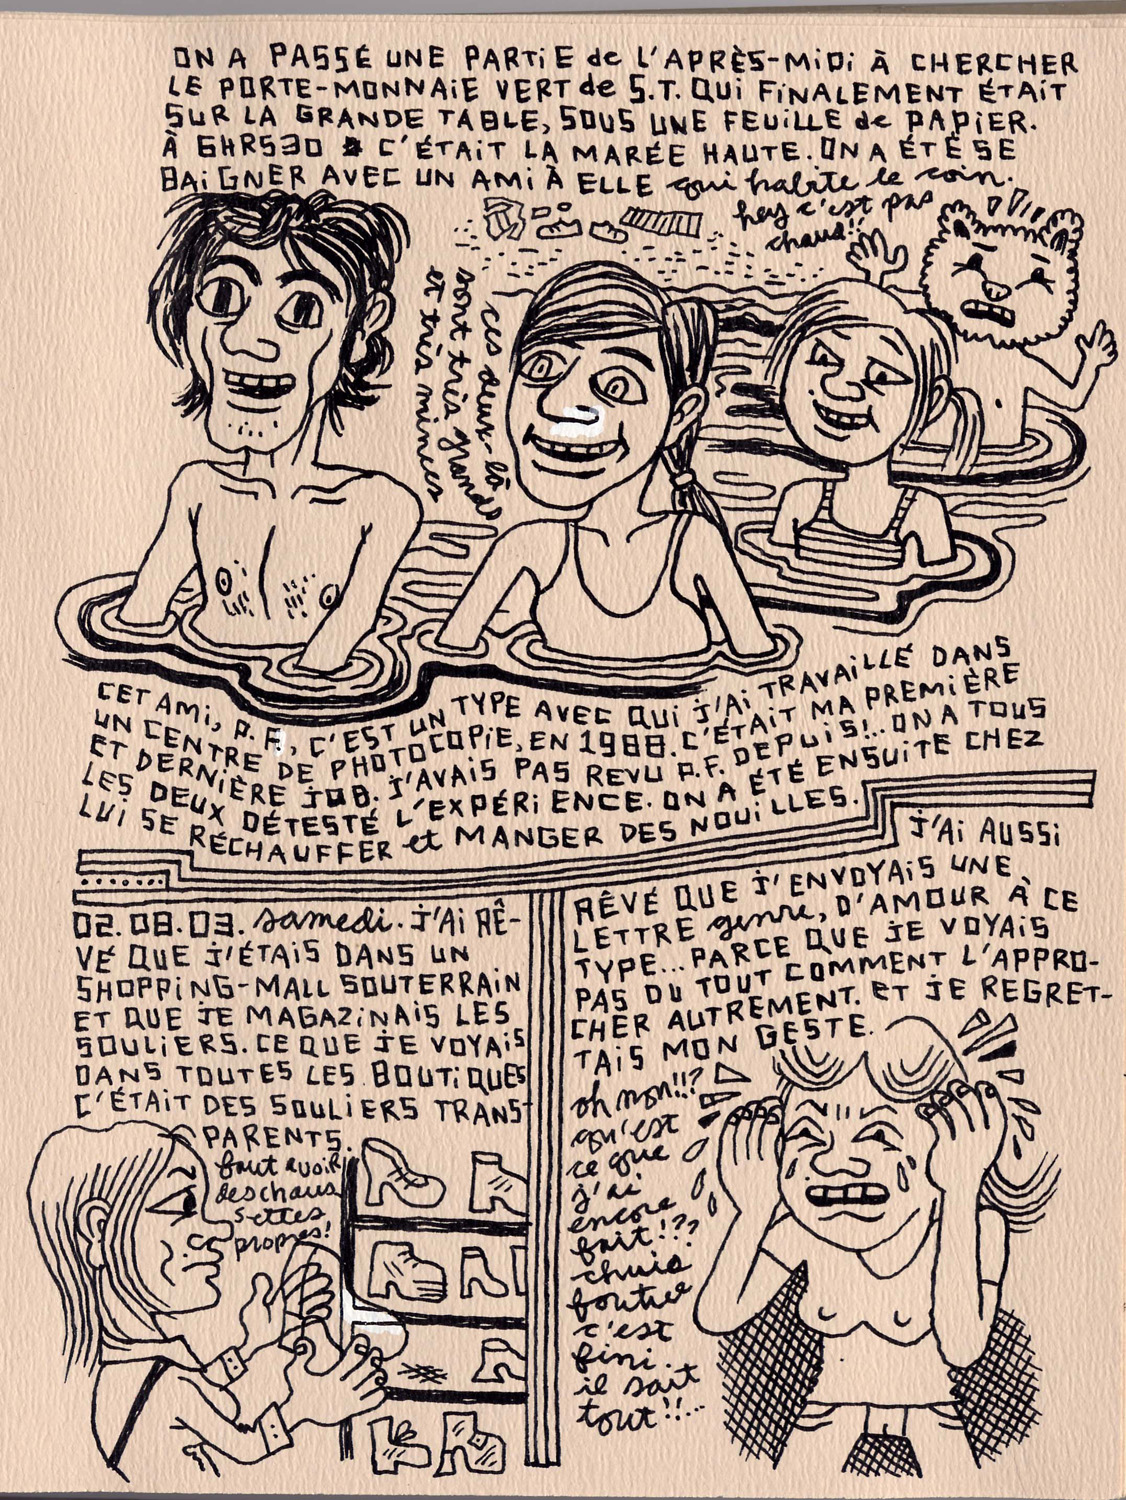 ON A PASSÉ UNE PARTiE de L'APRÈS-MiDi À CHERCHER
LE PORTE-MONNAiE VERT de S.T. QUi FiNALEMENT ÉTAiT
SUR LA GRANDE TABLE, SOUS UNE FEUiLLE de PAPiER.
À 6HRS30 C'ÉTAiT LA MARÉE HAUTE. ON A ÉTÉ SE
BAiGNER AVEC UN AMi À ELLE qui habite le coin.
hey c'est pas
chaud!!
ces deux-là
sont très grands
et très minces
CET AMi, P.F., C'EST UN TYPE AVEC QUi J'Ai TRAVAiLLÉ DANS
UN CENTRE DE PHOTOCOPiE, EN 1988. C'ÉTAiT MA PREMiÈRE
ET DERNiÈRE JOB. J'AVAiS PAS REVU P.F. DEPUiS!.. ON A TOUS
LES DEUX DÉTESTÉ L'EXPÉRiENCE. ON A ÉTÉ ENSUiTE CHEZ
LUi SE RÉCHAUFFER et MANGER DES NOUiLLES.
02.08.03. samedi. J'Ai RÊ-
VÉ QUE J'ÉTAiS DANS UN
SHOPPiNG-MALL SOUTERRAiN
ET QUE JE MAGAZiNAiS LES
SOULiERS. CE QUE JE VOYAiS
DANS TOUTES LES BOUTiQUES
C'ÉTAiT DES SOULiERS TRANS-
PARENTS.
faut avoir
des chaus
settes
propres!
J'Ai AUSSi
RÊVÉ QUE J'ENVOYAiS UNE
LETTRE genre, D'AMOUR À CE
TYPE... PARCE QUE JE VOYAiS
PAS DU TOUT COMMENT L'APPRO-
CHER AUTREMENT. ET JE REGRET-
TAiS MON GESTE.
oh non!!?
qu'est
ce que
j'ai
encore
fait!??
chuis
foutue
c'est
fini.
il sait
tout!!...